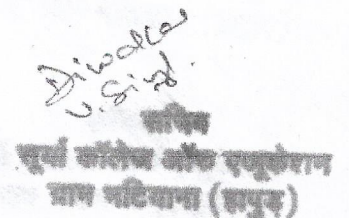 Diwakar
V. Singh.
सचिव
सूर्या कॉलेज ऑफ एजूकेशन
ग्राम पटियाना (हापुड़)